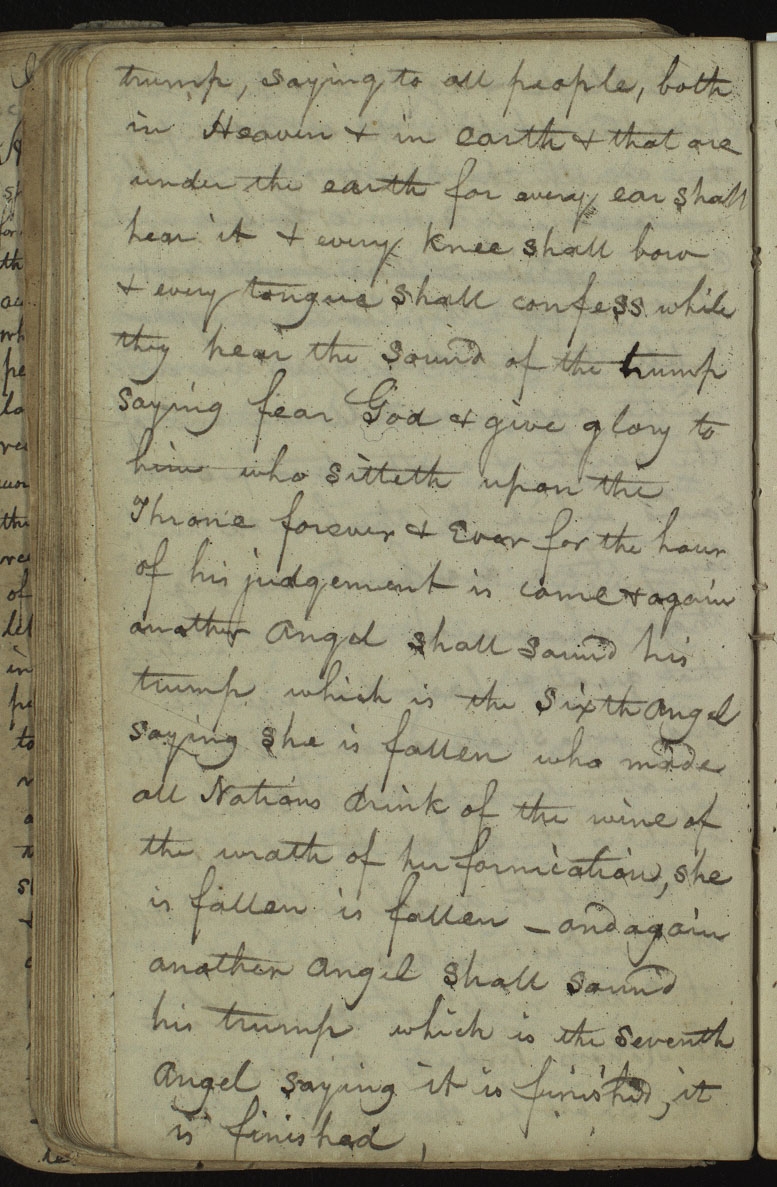 trump, saying to all people, both
in Heaven & in earth & that are
under the earth for every ear shall
hear it & every knee shall bow
& every tongue shall confess while
they hear the sound of the trump
saying fear God & give glory to
him who sitteth upon the
Throne forever & Ever for the hour
of his judgement is come & again
another Angel shall sound his
trump which is the Sixth Angel
saying she is fallen who made
all Nations drink of the wine of
the wrath of her fornication, she
is fallen is fallen – and again
another Angel shall sound
his trump which is the Seventh
Angel saying it is finished, it
is finished,